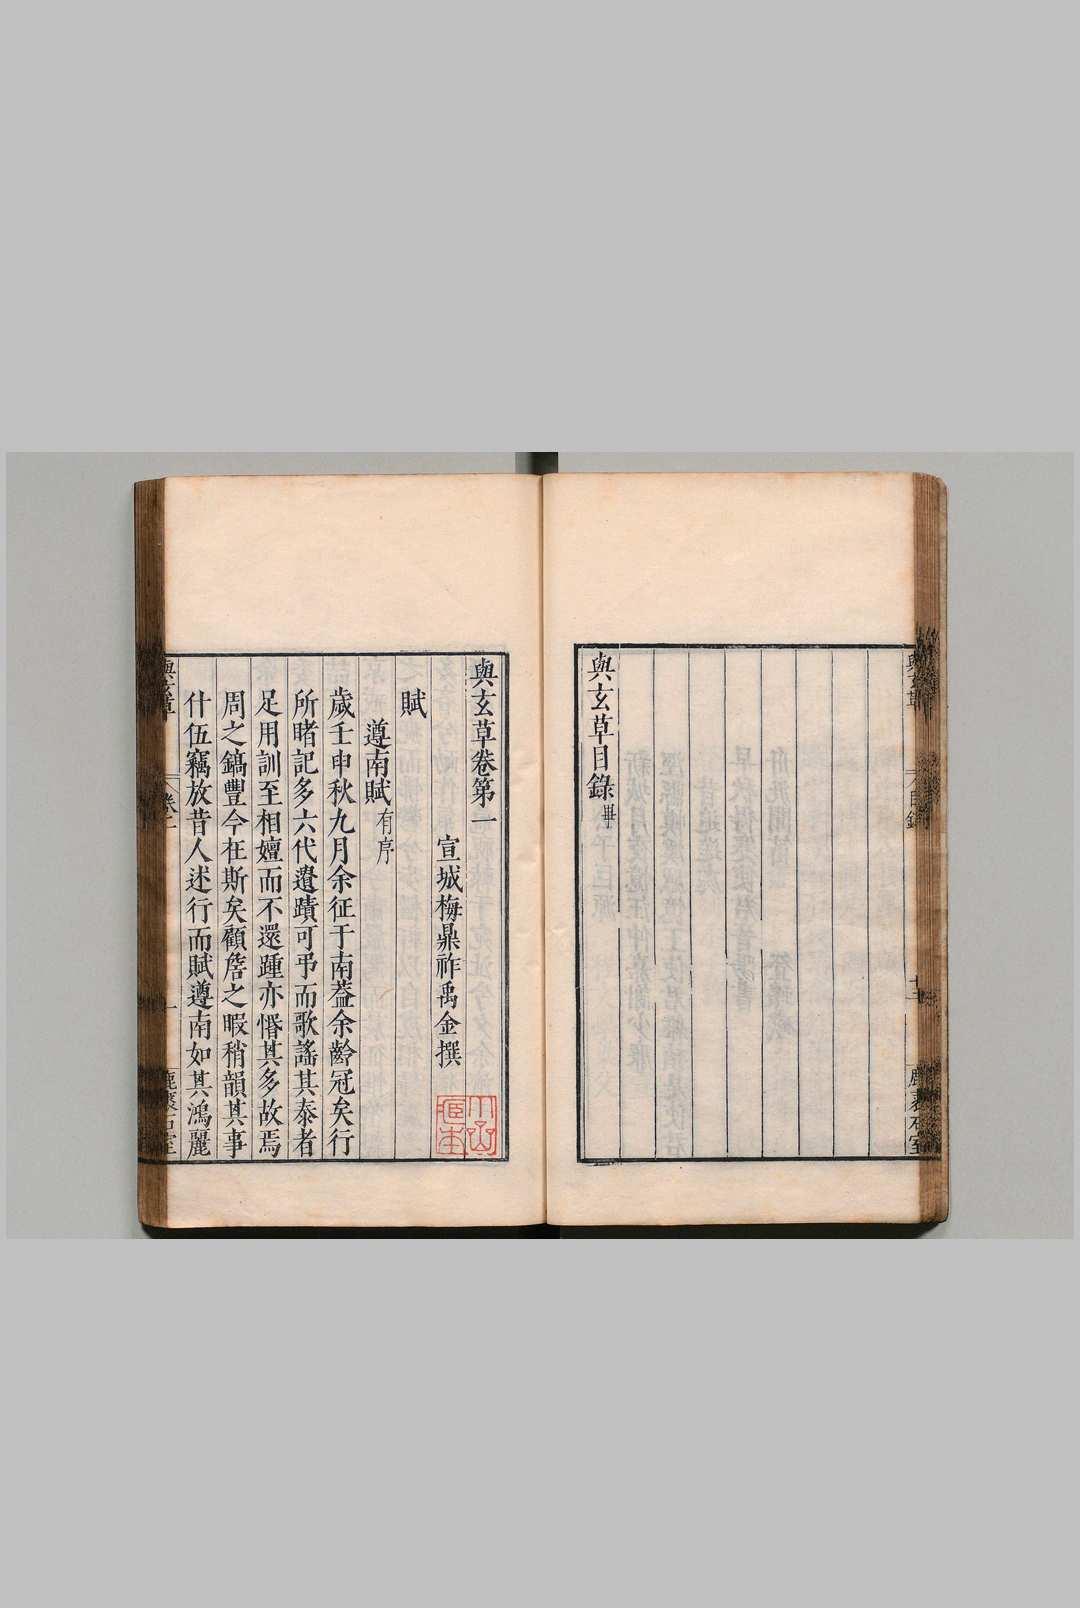 與玄草目錄畢
與玄草卷第一
宣城梅鼎祚禹金撰
賦
遵南賦有序
歲壬申秋九月余征于南葢余齡冠矣行
所睹記多六代遺蹟可弔而歌謠其泰者
足用訓至相嬗而不還踵亦惛其多故焉
周之鎬豐今在斯矣顧詹之暇稍韻其事
什伍竊放昔人述行而賦遵南如其鴻麗
與玄草
卷一
一
鹿裘石室